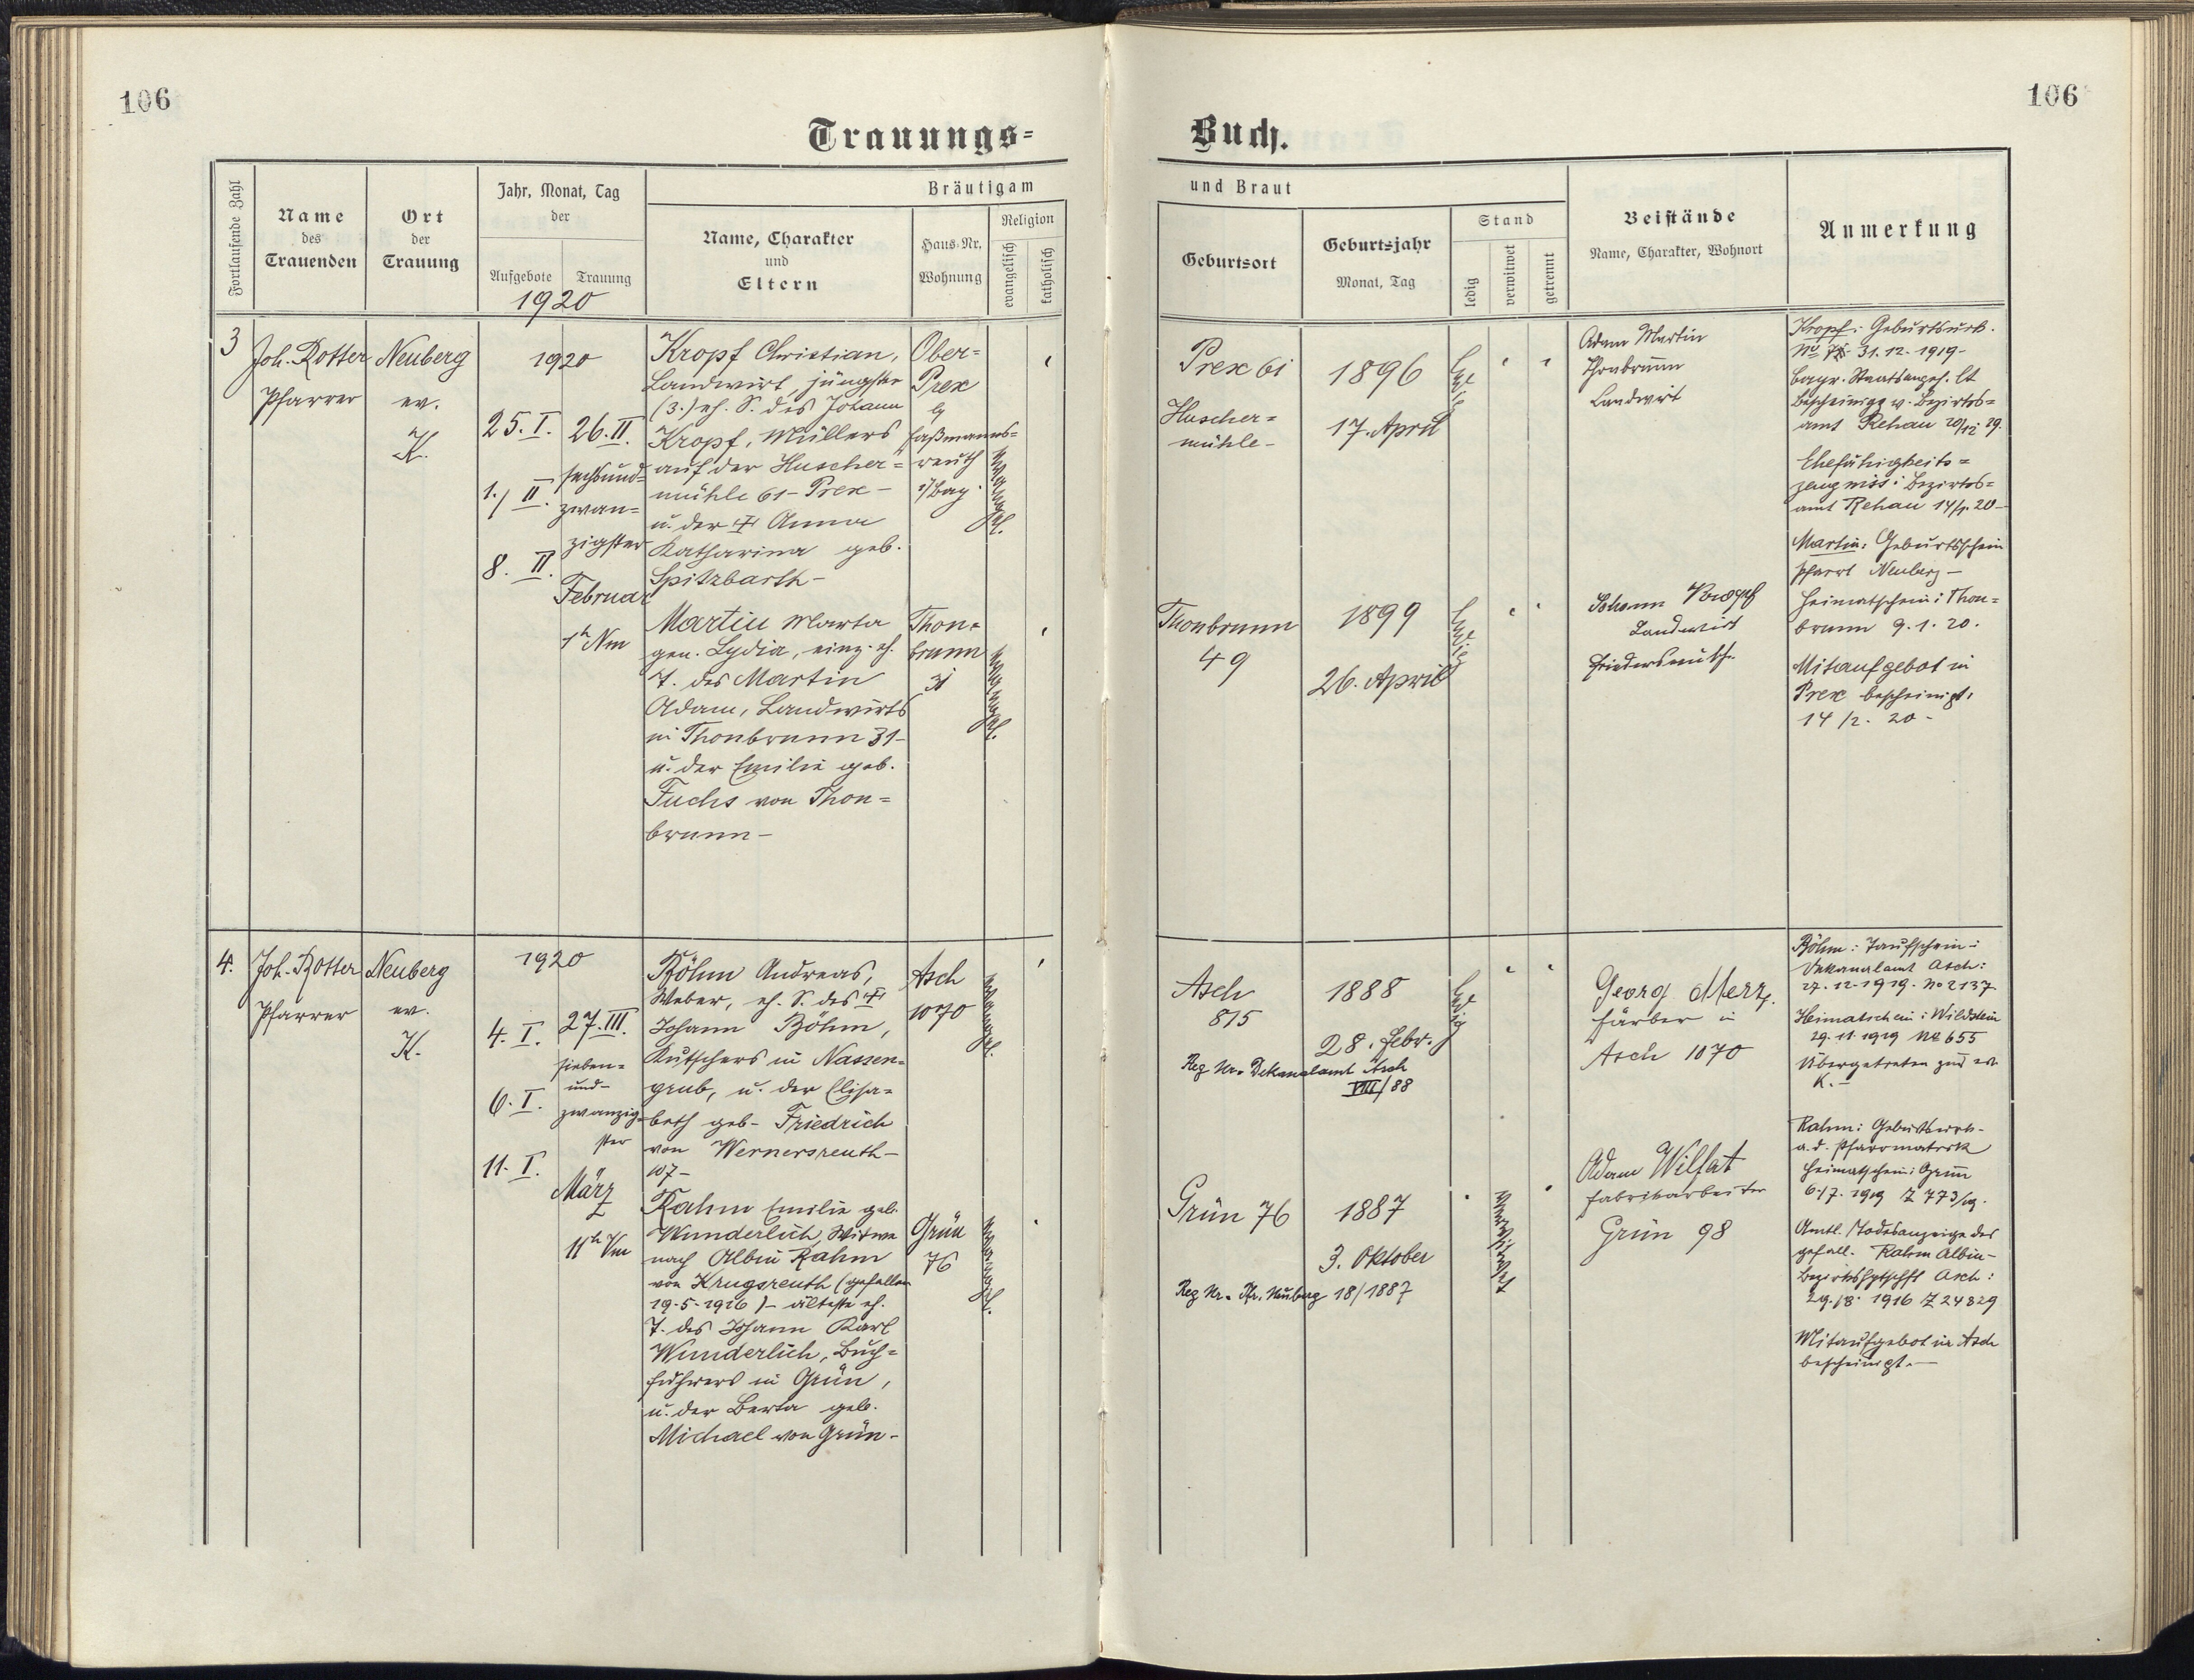 106
106
Trauungs=
Buch.
Fortlaufende Zahl
Name
des
Trauenden
Ort
der
Trauung
Jahr, Monat, Tag
der
Aufgebote
Trauung
1920
Bräutigam
Name, Charakter
und
Eltern
Haus-Nr.
Wohnung
Religion
evangelisch
katholisch
und Braut
Geburtsort
Geburtsjahr
Monat, Tag
Stand
ledig
verwitwet
getrennt
Beistände
Name, Charakter, Wohnort
Anmerkung
3
Joh. Rotter
Pfarrer
Neuberg
ev.
K.
1920
25. I.
1./ II.
8. II.
26. II.
sechsund=
zwan=
zigster
Februar
1h Nm
Kropf Christian,
Landwirt, jüngster
(3.) eh. S. des Johann
Kropf, Müllers
auf der Huscher=
mühle 61 - Prex -
u. der Anna
Katharina geb.
Spitzbarth -
Ober=
Prex
Faßmanns=
reuth
i/Bay.
evangel.
Martin Marta
gen. Lydia, einz. eh.
T. des Martin
Adam, Landwirts
in Thonbrunn 31 -
u. der Emilie geb.
Fuchs von Thon=
brunn -
Thon=
brunn
31
evangel.
Prex 61
Huscher=
mühle -
1896
17. April
ledig
Adam Martin
Thonbrunn
Landwirt
Thonbrunn
49
1899
26. April
ledig
Johann Kropf
Landwirt
Kropf: Geburtsurk.
31.12.1919 -
bayr. Staatsangeh. lt
Bescheinigg v. Bezirks=
amt Rehau 20/12 19.
Ehefähigkeits=
zeugniss: Bezirks=
amt Rehau 14/1. 20 -
Martin: Geburtsschein
Pfarrt Neuberg -
Heimatschein: Thon=
brunn 9.1.20.
Mitaufgebot in
Prex bescheinigt:
14/2. 20 -
4.
Joh. Rotter
Pfarrer
Neuberg
ev.
K.
1920
4. I.
6. I.
11. I.
27. III.
sieben=
und=
zwanzig=
ster
März
11h Vm
Böhm Andreas,
Weber, eh. S. des
Johann Böhm,
Kutschers in Nassen=
grub, u. der Elisa=
beth geb. Friedrich
von Wernersreuth -
107 -
Asch
1070
evangel.
Rahm Emilie geb.
Wunderlich, Witwe
nach Albin Rahm
von Krugsreuth (gefallen
19.5.1916) - älteste eh.
T. des Johann Karl
Wunderlich, Buch=
führers in Grün,
u. der Berta geb.
Michael von Grün -
Grün
76
evangel.
Asch
815
1888
28. Febr.
Reg Nr. Dekanalamt Asch
VIII/88
ledig
Georg Merz,
Färber in
Asch 1070
Grün 76
1887
3. Oktober
Reg Nr. Pfr. Neuberg 18/1887
verwitwet
Adam Wilfat
Fabrikarbeiter
Grün 98
Böhm: Taufschein:
Dekanalamt Asch:
27.12.1919. No 2137
Heimatschein: Wildstein
29.11.1919 No 655
Übergetreten zur ev.
K. -
Rahm: Geburtsurk.
a. d. Pfarrmatrik
Heimatschein: Grün
6./7. 1919 Z 773/19.
Amtl. Todesanzeige des
gefall. Rahm Albin -
Bezirkshptschft Asch:
29./8. 1916 Z 24829
Mitaufgebot in Asch
bescheinigt. -